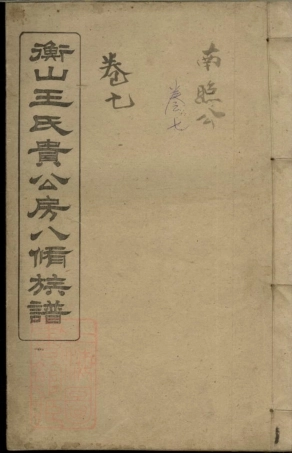 衡山王氏貴公房八脩族譜
卷七
南照公
卷七